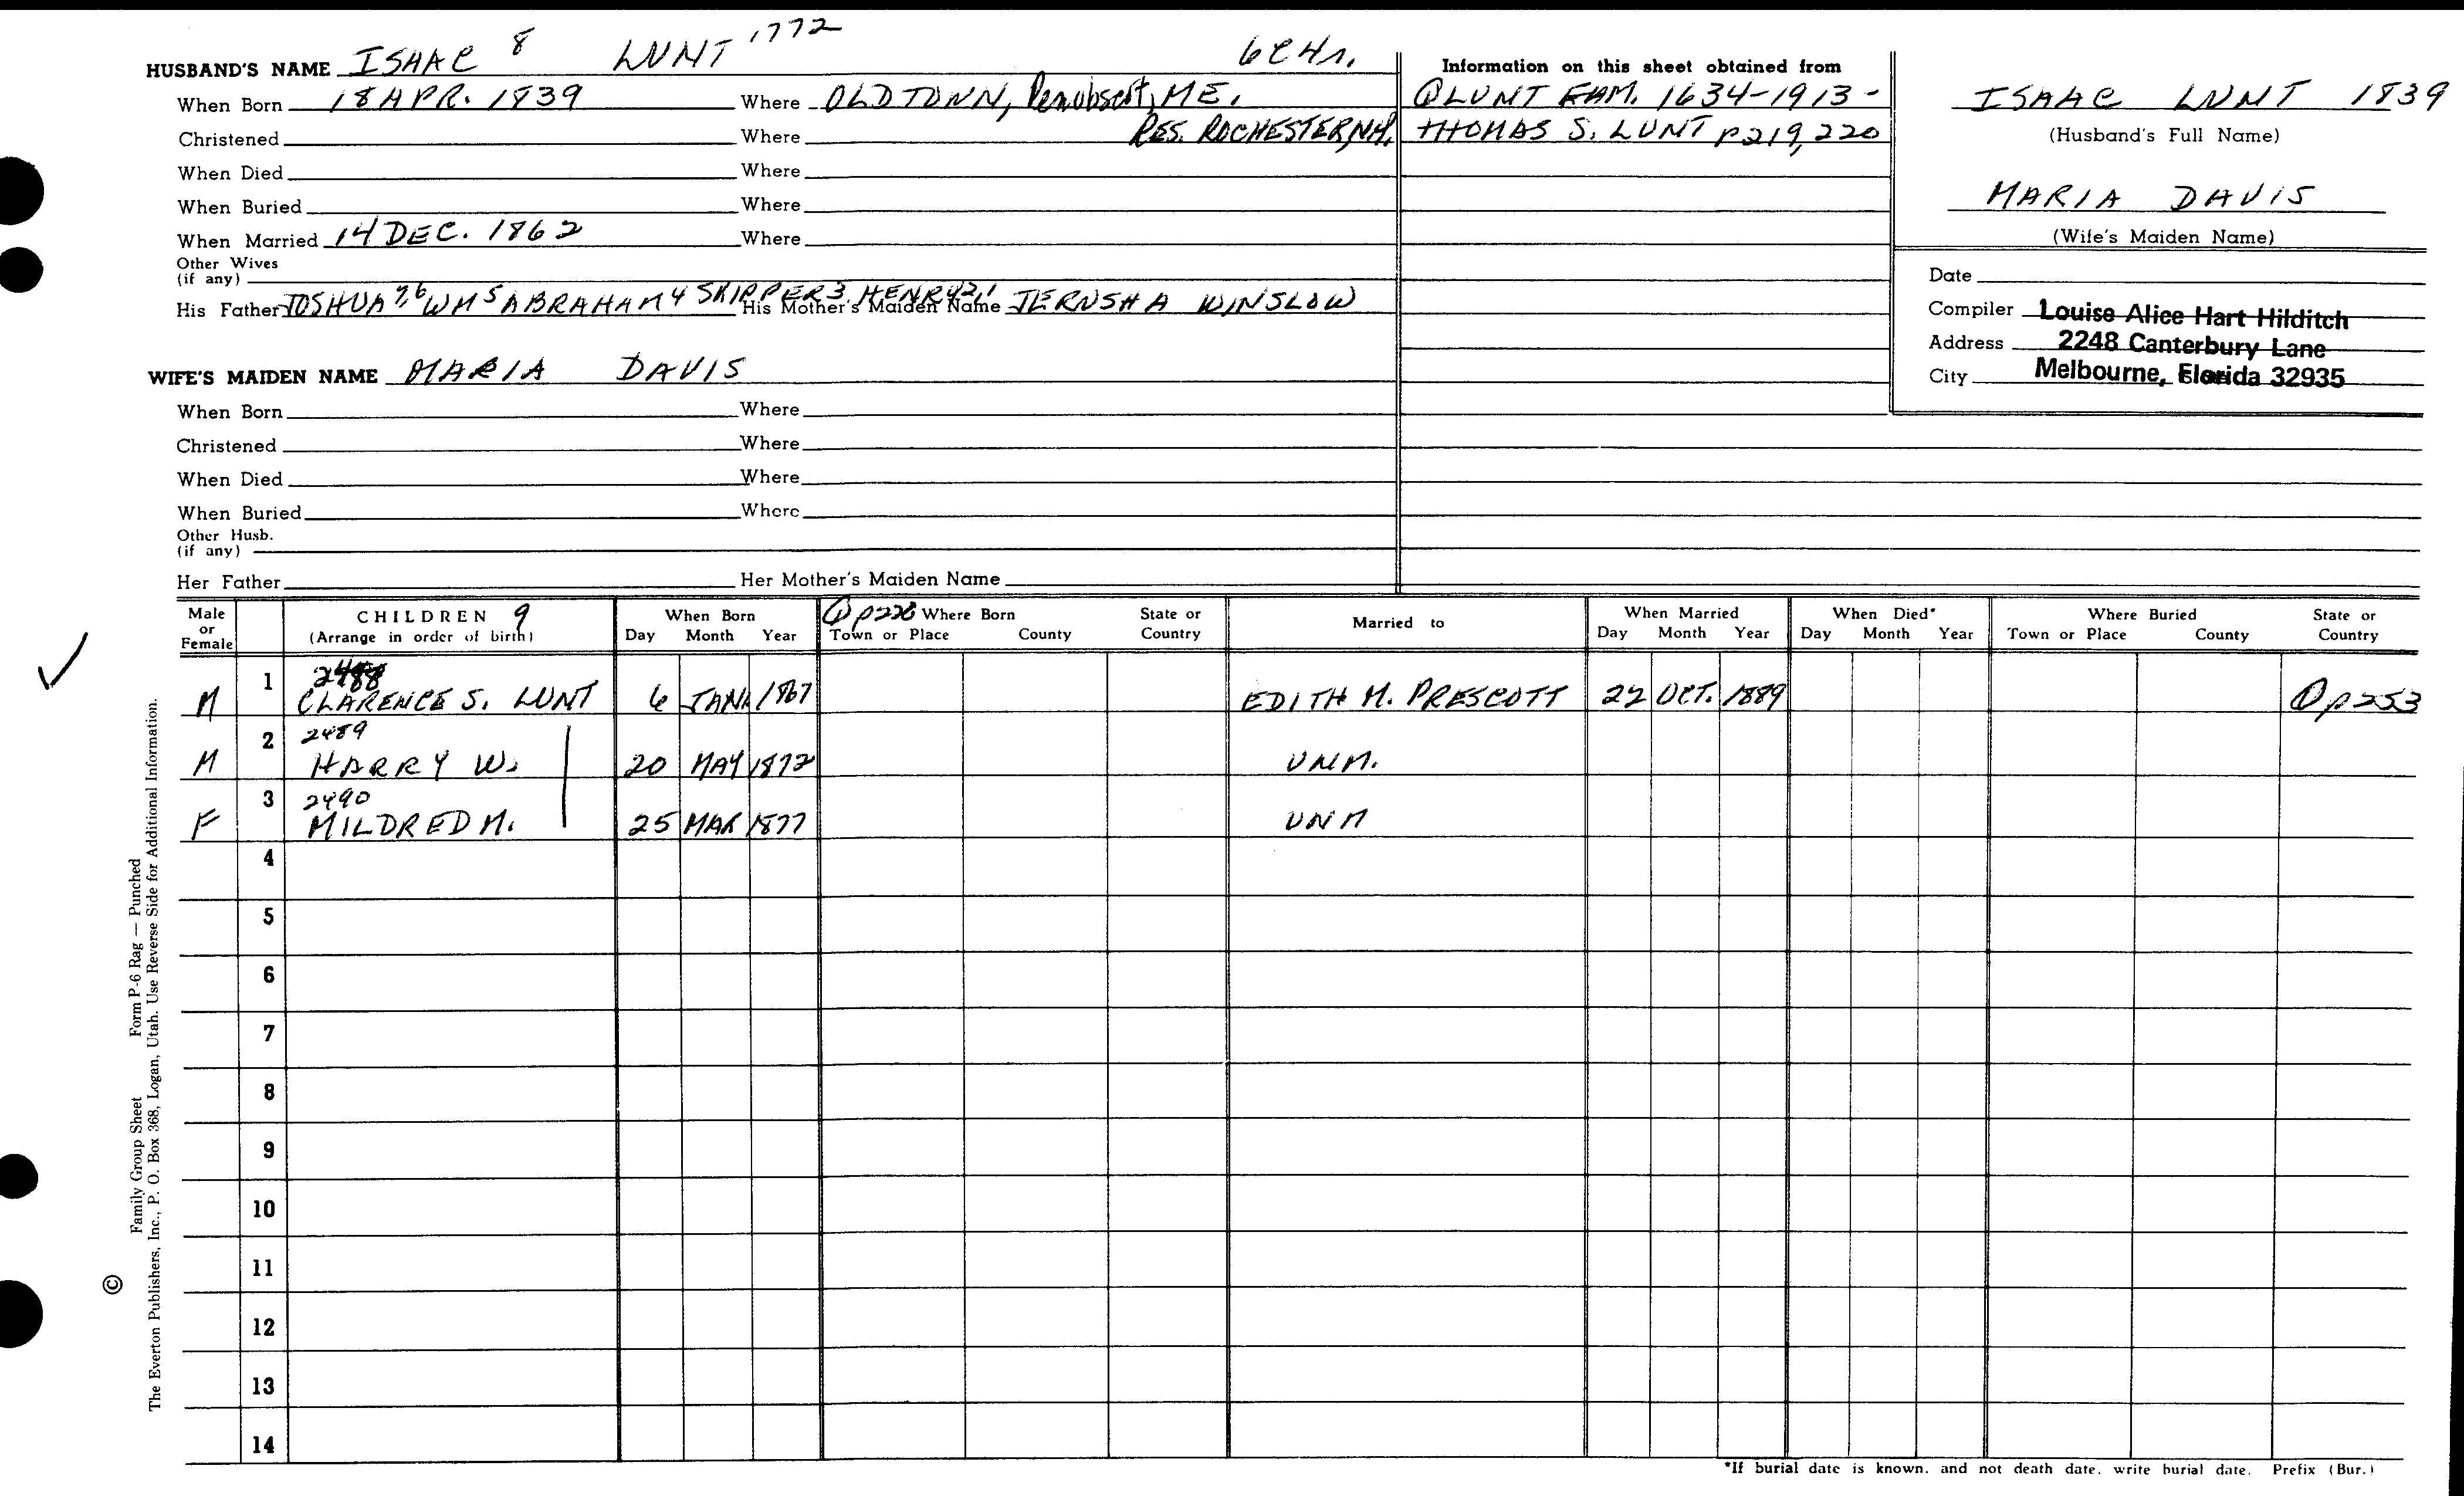 HUSBAND'S NAME ISAAC 8 LUNT 1772 6 Ch.
When Born 18 APR. 1839 Where OLDTOWN, Penobscot, ME.
Christened Where RES. ROCHESTER, NH.
When Died Where
When Buried Where
When Married 14 DEC. 1862 Where
Other Wives
(if any)
His Father JOSHUA 7,6 WM 5 ABRAHAM 4 SKIPPER 3, HENRY 2,1 His Mother's Maiden Name JERUSHA WINSLOW
WIFE'S MAIDEN NAME MARIA DAVIS
When Born Where
Christened Where
When Died Where
When Buried Where
Other Husb.
(if any)
Her Father Her Mother's Maiden Name
Information on this sheet obtained from
① LUNT FAM. 1634-1913-
THOMAS S. LUNT p219, 220
ISAAC LUNT 1839
(Husband's Full Name)
MARIA DAVIS
(Wife's Maiden Name)
Date
Compiler Louise Alice Hart Hilditch
Address 2248 Canterbury Lane
City Melbourne, Florida 32935
Male or Female
CHILDREN 9
(Arrange in order of birth)
When Born
Day Month Year
① p220 Where Born State or
Town or Place County Country
Married to
When Married
Day Month Year
When Died*
Day Month Year
Where Buried State or
Town or Place County Country
2488
M 1 CLARENCE S. LUNT 6 JAN. 1867 EDITH M. PRESCOTT 22 OCT. 1889 ① p253
2489
M 2 HARRY W. 20 MAY 1872 UNM.
2490
F 3 MILDRED M. 25 MAR 1877 UNM
4
5
6
7
8
9
10
11
12
13
14
*If burial date is known, and not death date, write burial date. Prefix (Bur.)
© Family Group Sheet Form P-6 Rag — Punched
The Everton Publishers, Inc., P. O. Box 368, Logan, Utah. Use Reverse Side for Additional Information.